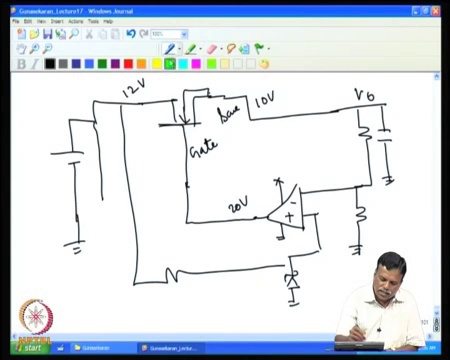 Gunasekaran_Lecture17 - Windows Journal
File Edit View Insert Actions Tools Help
100%
B I
12V
10V
V0
Gate
20V
-
+
NPTEL
start
Gunasekaran
Gunasekaran_Lectu...